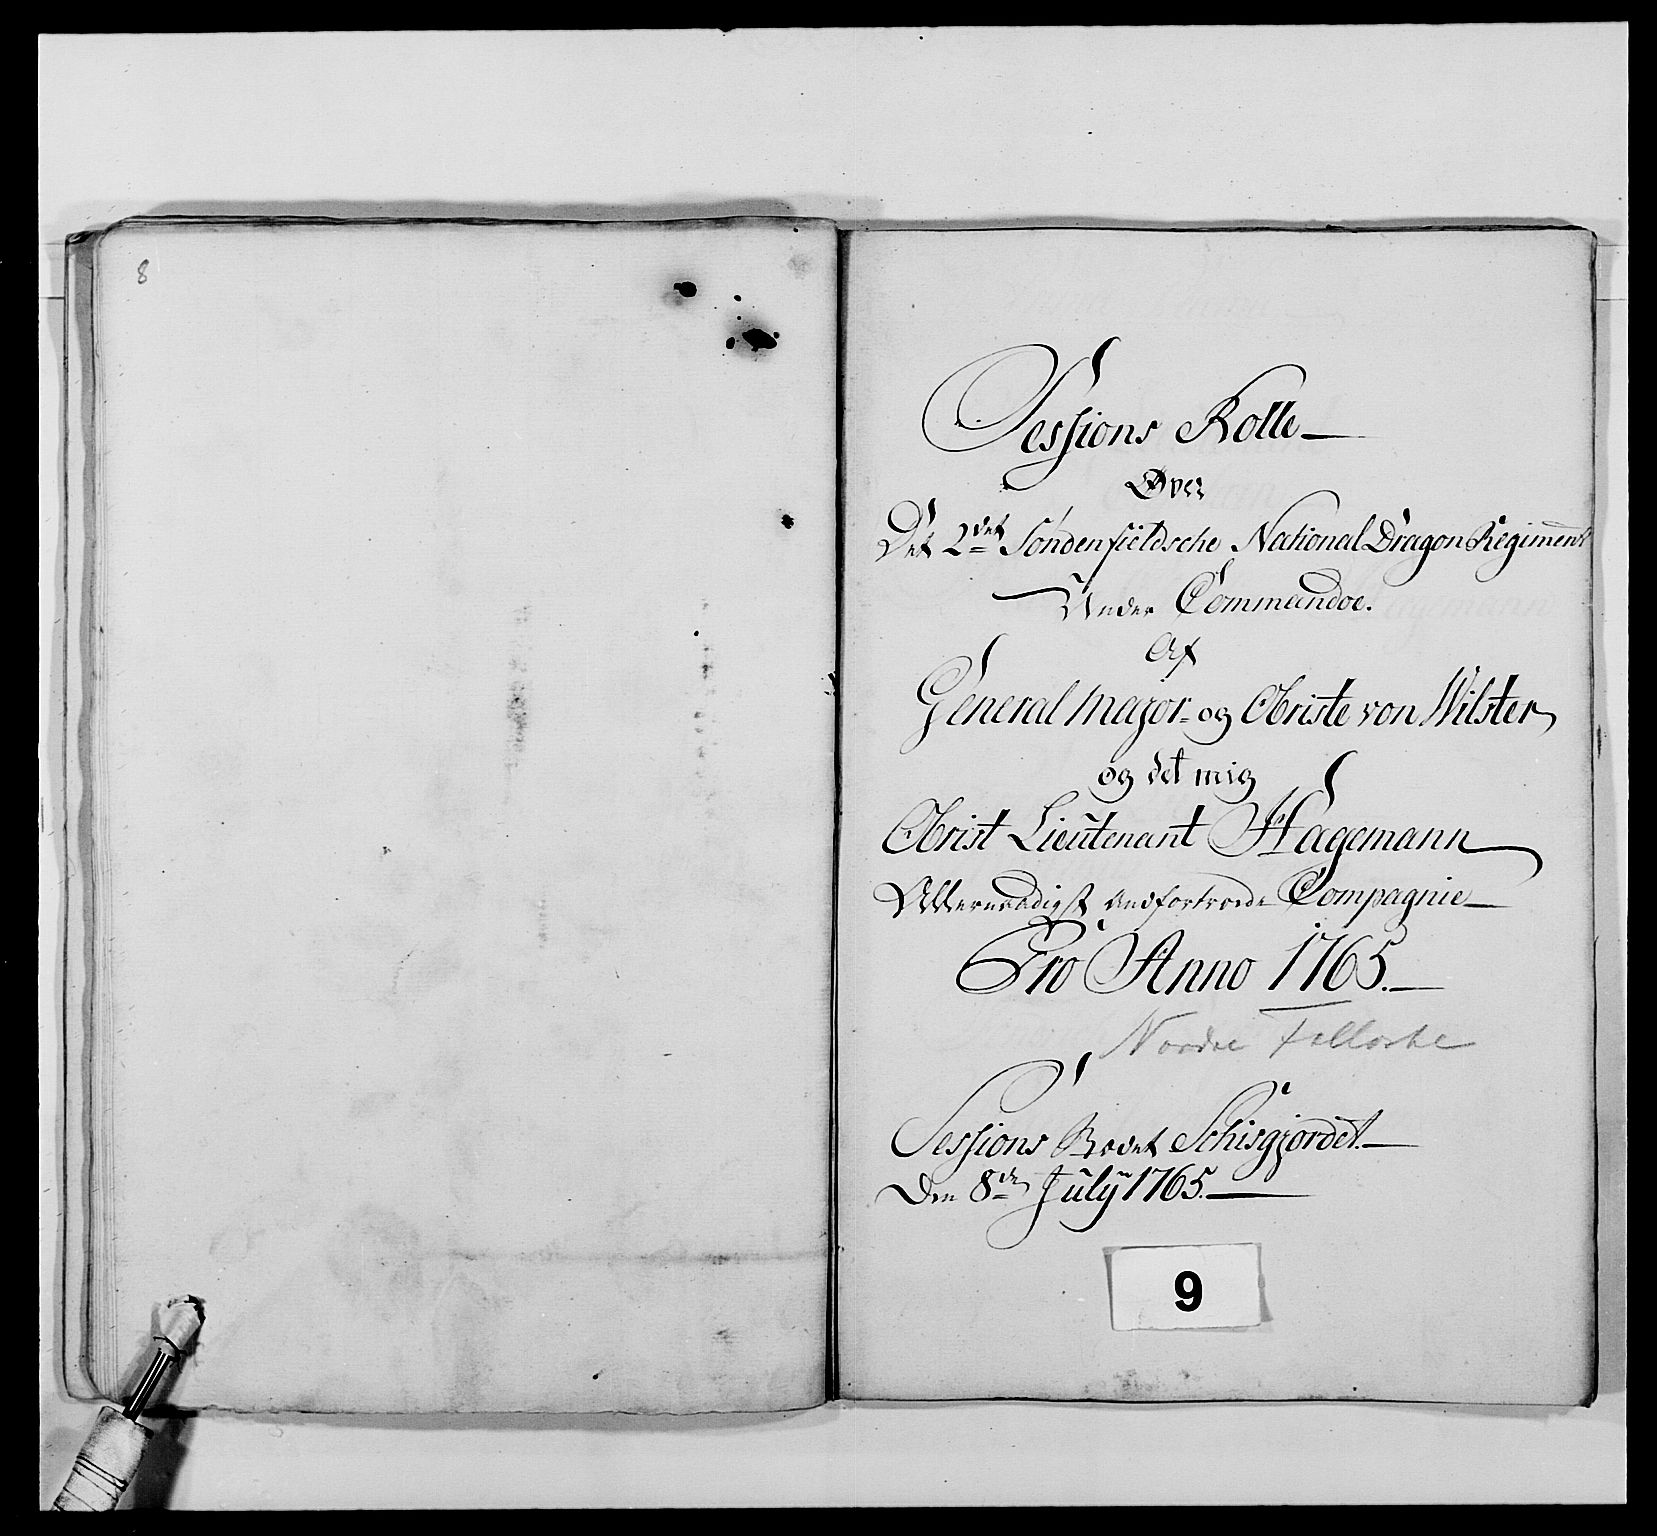 8
Sessions Rolle
Over
Det 2det Söndenfieldsche National Dragon Regiment
Under Commandoe.
Af
General Major og Obriste von Wilster
og det mig
Obrist Lieutenant Hagemann
Allernaadigst andfortroede Compagnie
Pro Anno 1765.
Nordre
Sessions Bodet Schisgjordet.
Den 8de July 1765.
9